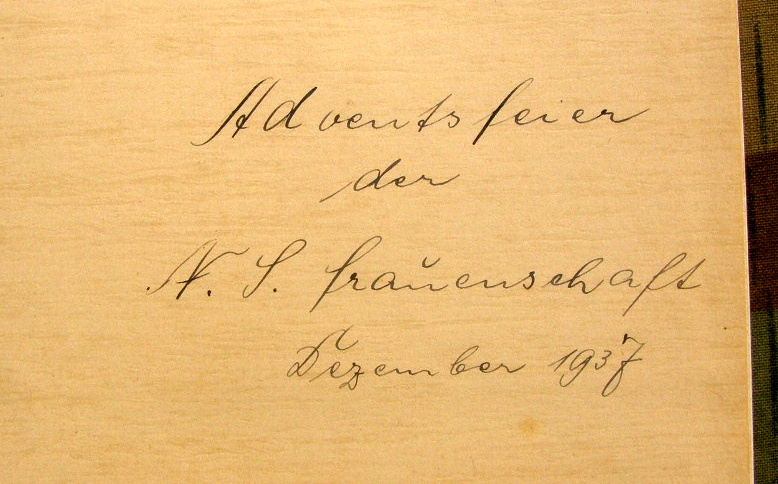 Adventsfeier
der
N. S. Frauenschaft
Dezember 1937